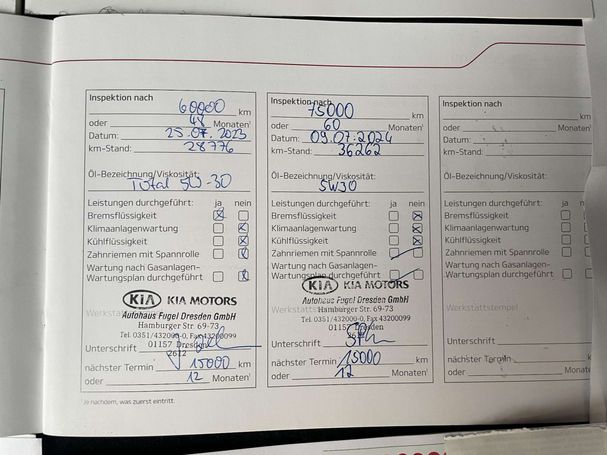 Inspektion nach 60000 km
oder 48 Monaten¹
Datum: 25.07.2023
km-Stand: 28776
Öl-Bezeichnung/Viskosität:
Total 5W-30
Leistungen durchgeführt: ja nein
Bremsflüssigkeit
Klimaanlagenwartung
Kühlflüssigkeit
Zahnriemen mit Spannrolle
Wartung nach Gasanlagen-
Wartungsplan durchgeführt
KIA KIA MOTORS
Autohaus Fugel Dresden GmbH
Hamburger Str. 69-73
Tel. 0351/432000-0, Fax 43200099
01157 Dresden
2612
Unterschrift
nächster Termin 15000 km
oder 12 Monaten¹
¹Je nachdem, was zuerst eintritt.
Inspektion nach 75000 km
oder 60 Monaten¹
Datum: 09.07.2024
km-Stand: 36262
Öl-Bezeichnung/Viskosität:
5W30
Leistungen durchgeführt: ja nein
Bremsflüssigkeit
Klimaanlagenwartung
Kühlflüssigkeit
Zahnriemen mit Spannrolle
Wartung nach Gasanlagen-
Wartungsplan durchgeführt
KIA KIA MOTORS
Autohaus Fugel Dresden GmbH
Hamburger Str. 69-73
Tel. 0351/432000-0, Fax 43200099
01157 Dresden
Unterschrift
nächster Termin 15000 km
oder 12 Monaten¹
Inspektion nach
km
oder Monaten¹
Datum:
km-Stand:
Öl-Bezeichnung/Viskosität:
Leistungen durchgeführt: ja nein
Bremsflüssigkeit
Klimaanlagenwartung
Kühlflüssigkeit
Zahnriemen mit Spannrolle
Wartung nach Gasanlagen-
Wartungsplan durchgeführt
Werkstattstempel
Unterschrift
nächster Termin km
oder Monaten